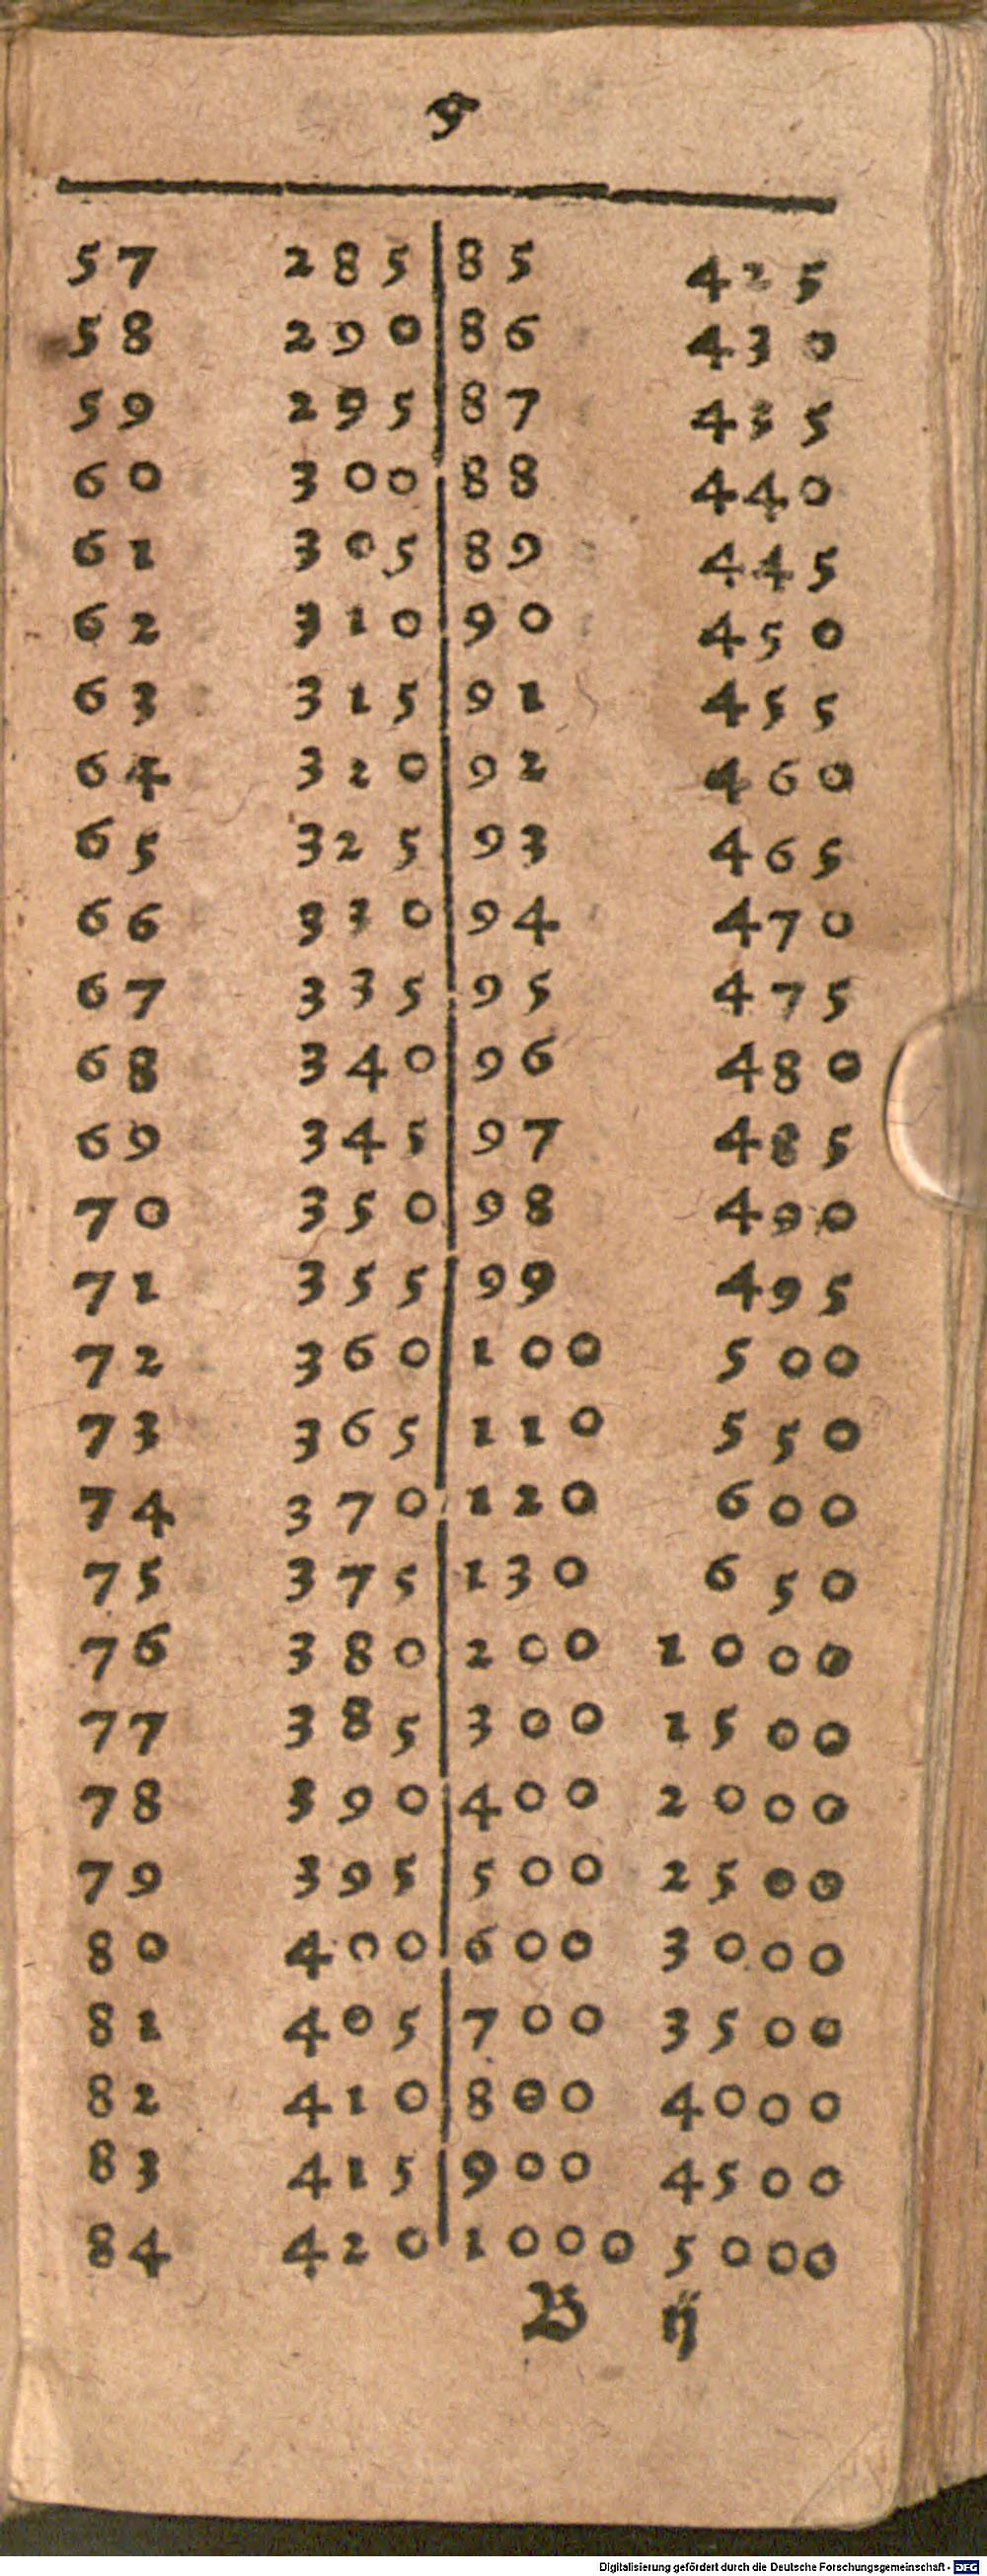 5
57 285 85 425
58 290 86 430
59 295 87 435
60 300 88 440
61 305 89 445
62 310 90 450
63 315 91 455
64 320 92 460
65 325 93 465
66 330 94 470
67 335 95 475
68 340 96 480
69 345 97 485
70 350 98 490
71 355 99 495
72 360 100 500
73 365 110 550
74 370 120 600
75 375 130 650
76 380 200 1000
77 385 300 1500
78 390 400 2000
79 395 500 2500
80 400 600 3000
81 405 700 3500
82 410 800 4000
83 415 900 4500
84 420 1000 5000
B ij
Digitalisierung gefördert durch die Deutsche Forschungsgemeinschaft - DFG